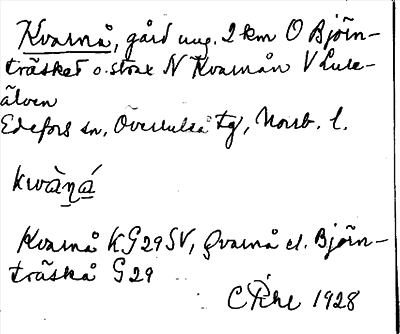 Kvarnå, gård ung. 2 km O Björn-
träsket o. strax N Kvarnån V Lule-
älven
Edefors sn, Överluleå tg, Norrb. l.
kwàn̠á̠
Kvarnå KG29SV, Qvarnå el. Björn-
träskå G29
1928